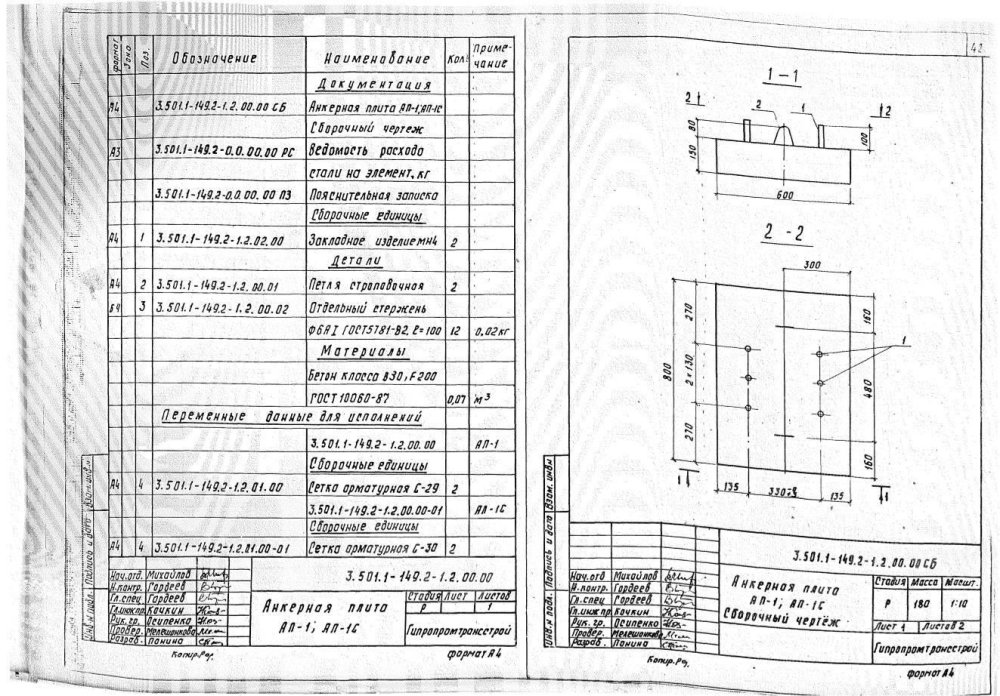 формат
Зона
Поз.
Обозначение
Наименование
Кол.
Приме-
чание
Документация
А4 3.501.1-149.2-1.2.00.00 СБ Анкерная плита АП-1;АП-1С
Сборочный чертеж
А3 3.501.1-149.2-0.0.00.00 РС Ведомость расхода
стали на элемент, кг
3.501.1-149.2-0.0.00.00 ПЗ Пояснительная записка
Сборочные единицы
А4 1 3.501.1-149.2-1.2.02.00 Закладное изделие МН4 2
Детали
А4 2 3.501.1-149.2-1.2.00.01 Петля строповочная 2
БЧ 3 3.501.1-149.2-1.2.00.02 Отдельный стержень
Ф6АI ГОСТ5781-82, ℓ=100 12 0,02кг
Материалы
Бетон класса В30, F200
ГОСТ 10060-87 0,07 м³
Переменные данные для исполнений
3.501.1-149.2-1.2.00.00 АП-1
Сборочные единицы
А4 4 3.501.1-149.2-1.2.01.00 Сетка арматурная С-29 2
3.501.1-149.2-1.2.00.00-01 АП-1С
Сборочные единицы
А4 4 3.501.1-149.2-1.2.01.00-01 Сетка арматурная С-30 2
Инв.№ подл. Подпись и дата Взам.инв.№
Нач.отд. Михайлов
Н.контр. Гордеев
Гл.спец Гордеев
Гл.инж.пр. Кочкин
Рук.гр. Осипенко
Провер. Мелешонкова
Разраб. Панина
3.501.1-149.2-1.2.00.00
Анкерная плита
АП-1; АП-1С
Стадия Лист Листов
Р 1
Гипропромтрансстрой
Копир.
формат А4
42
1-1
2 2 1 2
80
150
100
600
2-2
300
270
2×130
270
800
160
480
160
1
1 1
135 330 135
Инв.№ подл. Подпись и дата Взам.инв№
3.501.1-149.2-1.2.00.00СБ
Нач.отд Михайлов
Н.контр. Гордеев
Гл.спец Гордеев
Гл.инж.пр Кочкин
Рук.гр. Осипенко
Провер. Мелешонкова
Разраб. Панина
Анкерная плита
АП-1; АП-1С
Сборочный чертёж
Стадия Масса Масшт.
Р 180 1:10
Лист 1 Листов 2
Гипропромтрансстрой
Копир.
формат А4